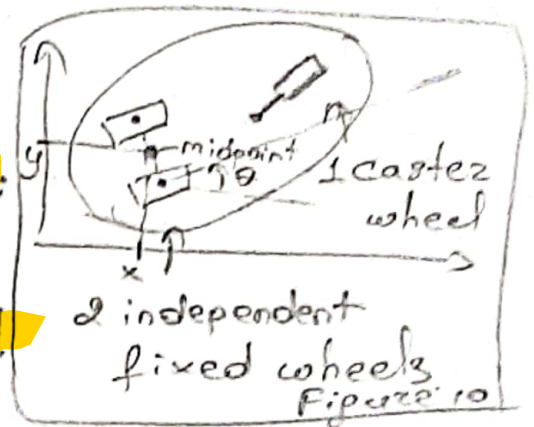 y
midpoint
θ
1 caster
wheel
x
2 independent
fixed wheels
Figure 10